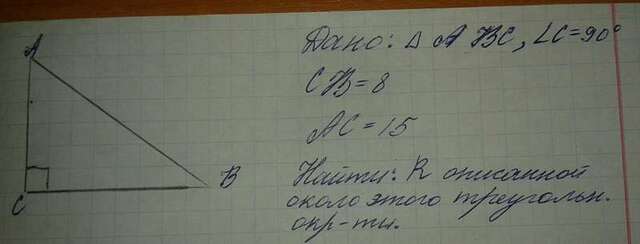 A
B
C
Дано: Δ ABC, ∠C=90°
CB=8
AC=15
Найти: R описанной
около этого треугольн.
окр-ти.